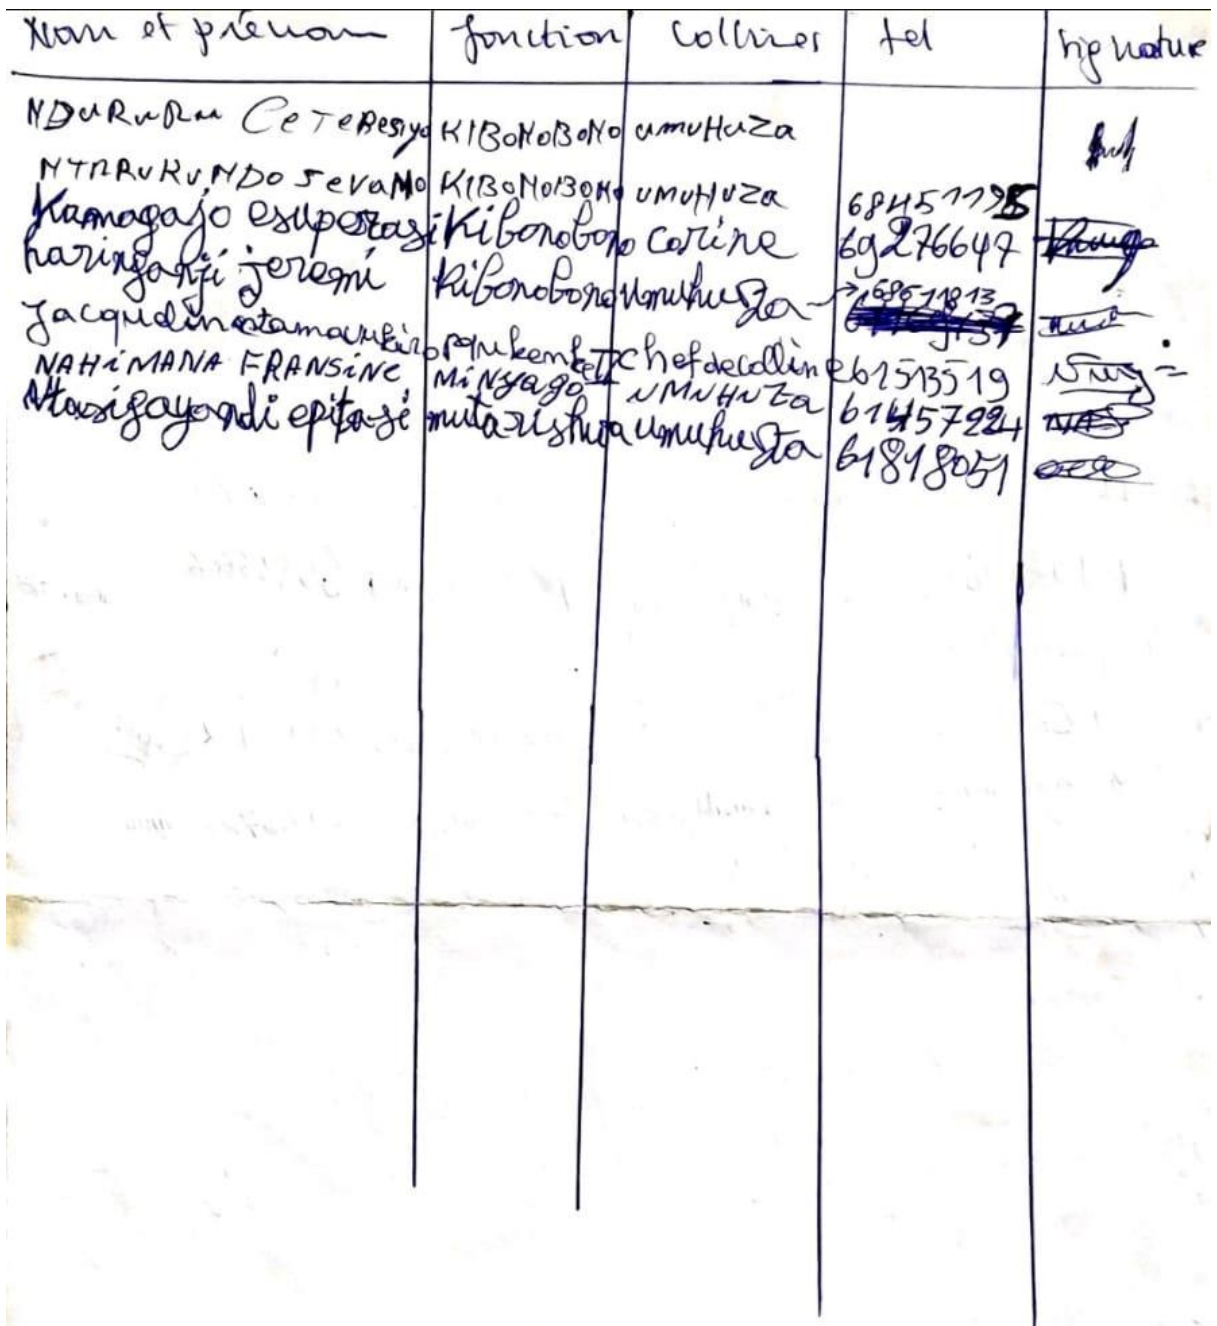 Nom et prénom fonction Collines tel Signature
NDURURU CeTeResiyo KIBONOBONO UmuHuZa
NTARUKUNDO JevaNo KIBONOBONO UMUHUZA 68451195
Kamagajo esuperasi Kibonobono Corine 69276647
haringanji jeremi Kibonobono Umuhuza 68611813
Jacqueline ntamavukiro II chef de colline 61513519
NAHiMANA FRANSiNe MiNyago UMUHUZA 61457224
Ntasigayandi epitasi mutarishwa umuhuza 61818051